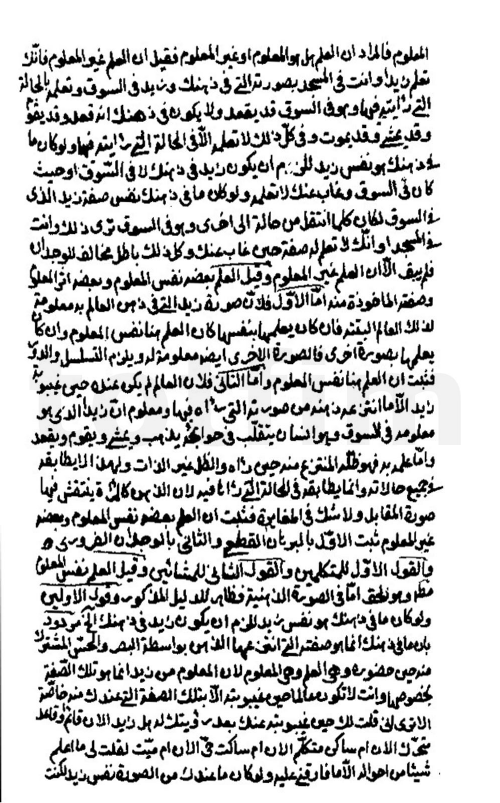 المعلوم فالمراد ان العلم هل هو المعلوم او غير المعلوم فقيل ان العلم غير المعلوم فانك
تعلم زيدا وانت فى المسجد بصورته التى فى ذهنك وزيد فى السوق وتعلم بالحالة
التى رايته فيها وهو فى السوق قد يقعد ولا يكون فى ذهنك انه قعد وقد يقوم
وقد يمشى وقد يموت وفى كل ذلك لا تعلمه الا فى الحالة التى رايته فيها ولو كان ما
فى ذهنك هو نفس زيد للزم ان يكون زيد فى ذهنك لا فى السوق او حيث
كان فى السوق وغاب عنك لا تعلمه ولو كان ما فى ذهنك نفس صفة زيد الذى
فى السوق لكان كلما انتقل من حالة الى اخرى وهو فى السوق ترى ذلك وانت
فى المسجد او انك لا تعلم له صفة حين غاب عنك وكل ذلك باطل مخالف للوجدان
فلم يبق الا ان العلم غير المعلوم وقيل العلم بعضه نفس المعلوم وبعضه اثر المعلوم
وصفته الماخوذة منه اما الاول فلان صورة زيد التى فى ذهن العالم به معلومة
لذلك العالم البتة فان كان يعلمها بنفسها كان العلم هنا نفس المعلوم وان كان
يعلمها بصورة اخرى فالصورة الاخرى ايضا معلومة له ويلزم التسلسل والدور
فثبت ان العلم هنا نفس المعلوم واما الثانى فلان العالم لم يكن عنده حين غيبوبة
زيد الا ما انتزعه ذهنه من صورته التى رءاه فيها ومعلوم ان زيدا الذى هو
معلومه فى السوق وهو انسان يتقلب فى حوائجه يذهب ويمشى ويقوم ويقعد
واما علمه به فهو ظله المنتزع منه حين رءاه والظل غير الذات ولهذا لا يطابقه
فى جميع حالاته وانما يطابقه فى الحالة التى رءاه فيه لان الذهن كالمراة ينتقش فيها
صورة المقابل ولا شك فى المغايرة فثبت ان العلم بعضه نفس المعلوم وبعضه
غير المعلوم ثبت الاول بالبرهان القطعى والثانى بالوجدان الضرورى
والقول الاول للمتكلمين والقول الثانى للمشائين وقيل العلم نفس المعلوم
مطلقا وهو الحق اما فى الصورة الذهنية فظاهر للدليل المذكور وقول الاولين
ولو كان ما فى ذهنك هو نفس زيد للزم ان يكون زيد فى ذهنك الخ مردود
بان ما فى ذهنك انما هو صفته التى انتزعها الذهن بواسطة البصر والحس المشترك
منه حين حضوره وهى العلم وهى المعلوم لان المعلوم من زيد انما هو تلك الصفة
بخصوصها وانت لا تكون عالما حين غيبوبته الا بتلك الصفة التى عندك منه خاصة
الا ترى انى قلت لك حين غيبوبته عنك بعد رؤيتك له هل زيد الان قائم او قاعد
متحرك الان ام ساكن متكلم الان ام ساكت حى الان ام ميت لقلت لى ما اعلم
شيئا من احواله الا ما فارقنى عليه ولو كان ما عندك من الصورة نفس زيد لكنت